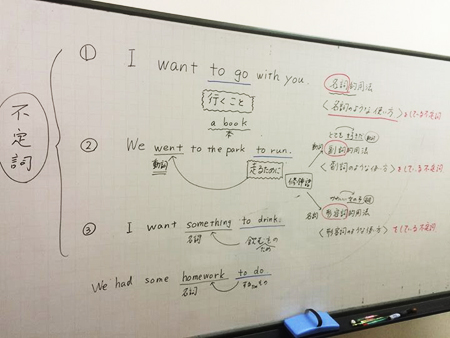 不定詞
① I want to go with you.
行くこと
a book
本
名詞的用法
<名詞のような使い方>をしている不定詞
② We went to the park to run.
動詞
走るために
修飾語
動詞
副詞的用法
<副詞のような使い方>をしている不定詞
名詞
形容詞的用法
<形容詞のような使い方>をしている不定詞
③ I want something to drink.
名詞
飲むための
We had some homework to do
名詞